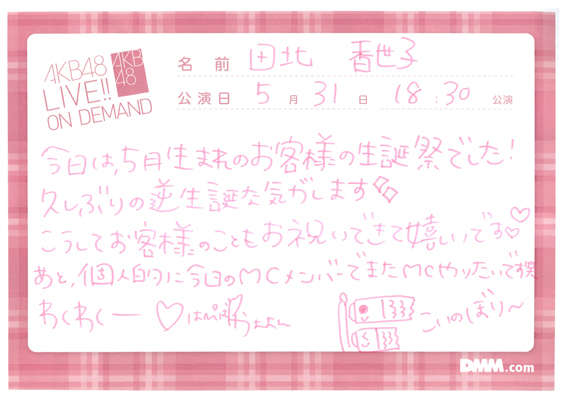 AKB48
LIVE!!
ON DEMAND
AKB
48
名前 田北 香世子
公演日 5月31日 18:30公演
今日は、5月生まれのお客様の生誕祭でした!
久しぶりの逆生誕な気がします
こうしてお客様のこともお祝いできて嬉しいです♡
あと、個人的に今日のMCメンバーでまたMCやりたいです笑
わくわくー
こいのぼり〜
DMM.com